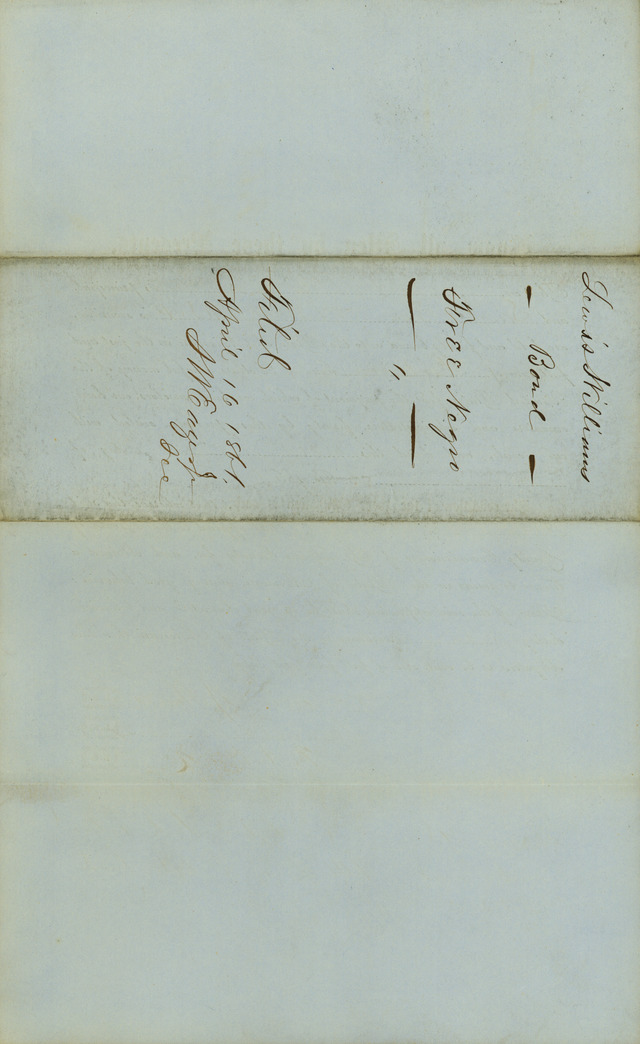 Lewis Williams
- Bond -
Free Negro
— " —
Filed
April 16 1861,